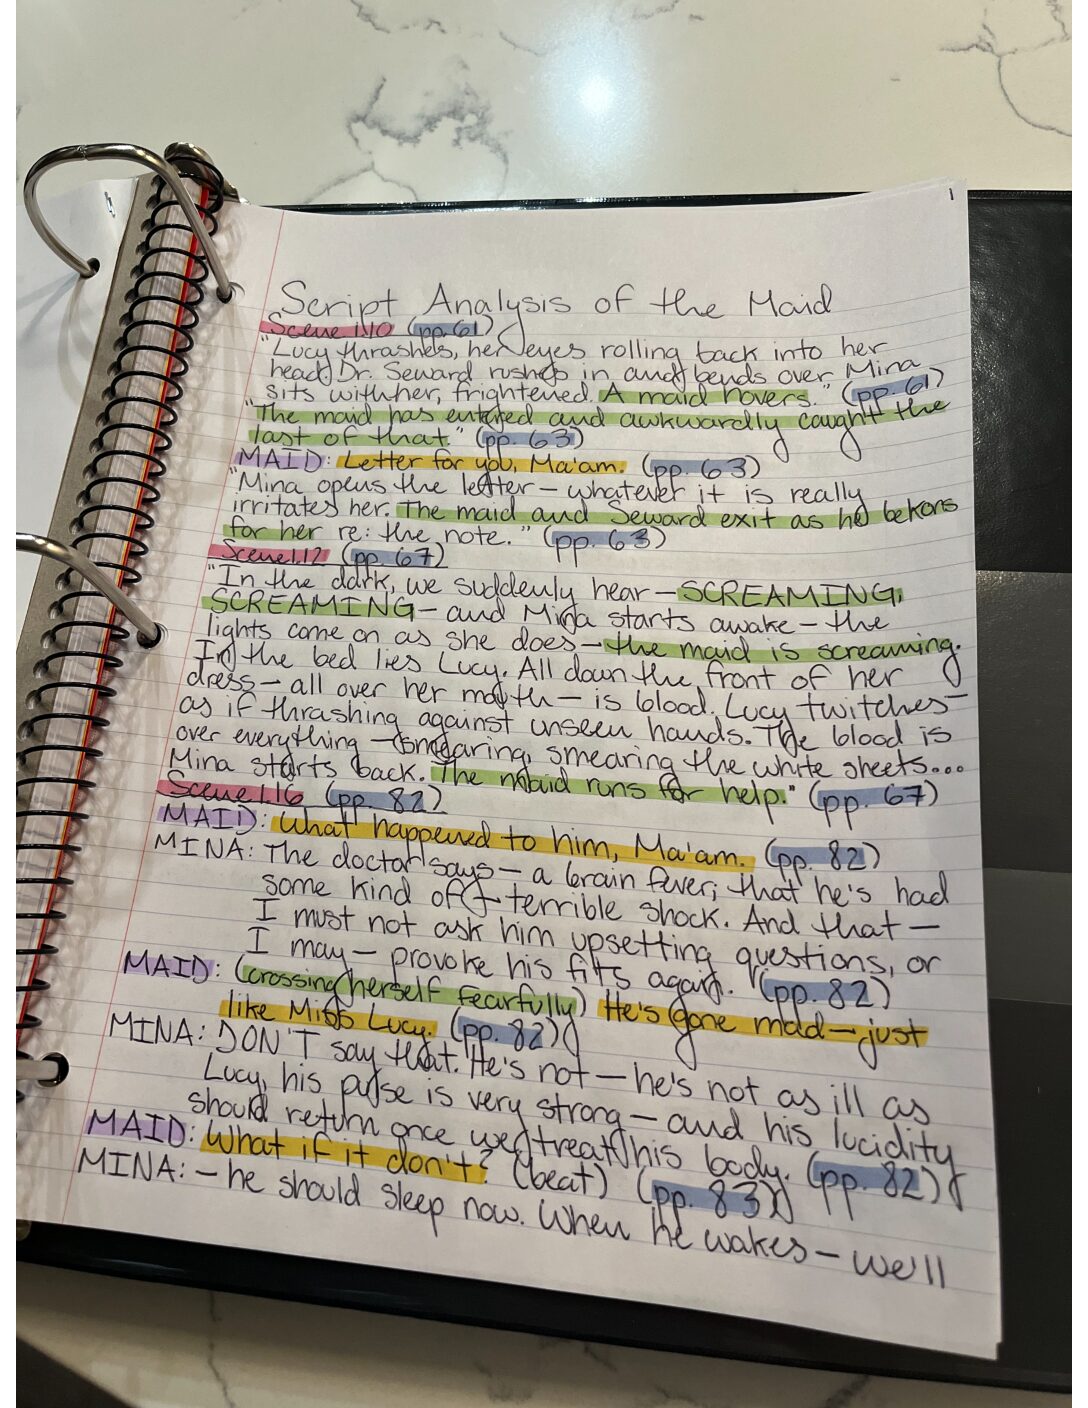 1
Script Analysis of the Maid
Scene 1.10 (pp. 61)
"Lucy thrashes, her eyes rolling back into her
head. Dr. Seward rushes in and bends over, Mina
sits with her, frightened. A maid hovers." (pp. 61)
"The maid has entered and awkwardly caught the
last of that." (pp. 63)
MAID: Letter for you, Ma'am. (pp. 63)
"Mina opens the letter – whatever it is really
irritates her. The maid and Seward exit as he bekons
for her re: the note." (pp. 63)
Scene 1.12 (pp. 67)
"In the dark, we suddenly hear – SCREAMING,
SCREAMING – and Mina starts awake – the
lights come on as she does – the maid is screaming.
In the bed lies Lucy. All down the front of her
dress – all over her mouth – is blood. Lucy twitches –
as if thrashing against unseen hands. The blood is
over everything – smearing, smearing the white sheets...
Mina starts back. The maid runs for help." (pp. 67)
Scene 1.16 (pp. 82)
MAID: What happened to him, Ma'am. (pp. 82)
MINA: The doctor says – a brain fever; that he's had
some kind of – terrible shock. And that –
I must not ask him upsetting questions, or
I may – provoke his fits again. (pp. 82)
MAID: (crossing herself fearfully) He's gone mad – just
like Miss Lucy. (pp. 82)
MINA: DON'T say that. He's not – he's not as ill as
Lucy, his pulse is very strong – and his lucidity
should return once we treat his body. (pp. 82)
MAID: What if it don't? (beat) (pp. 83)
MINA: – he should sleep now. When he wakes – we'll